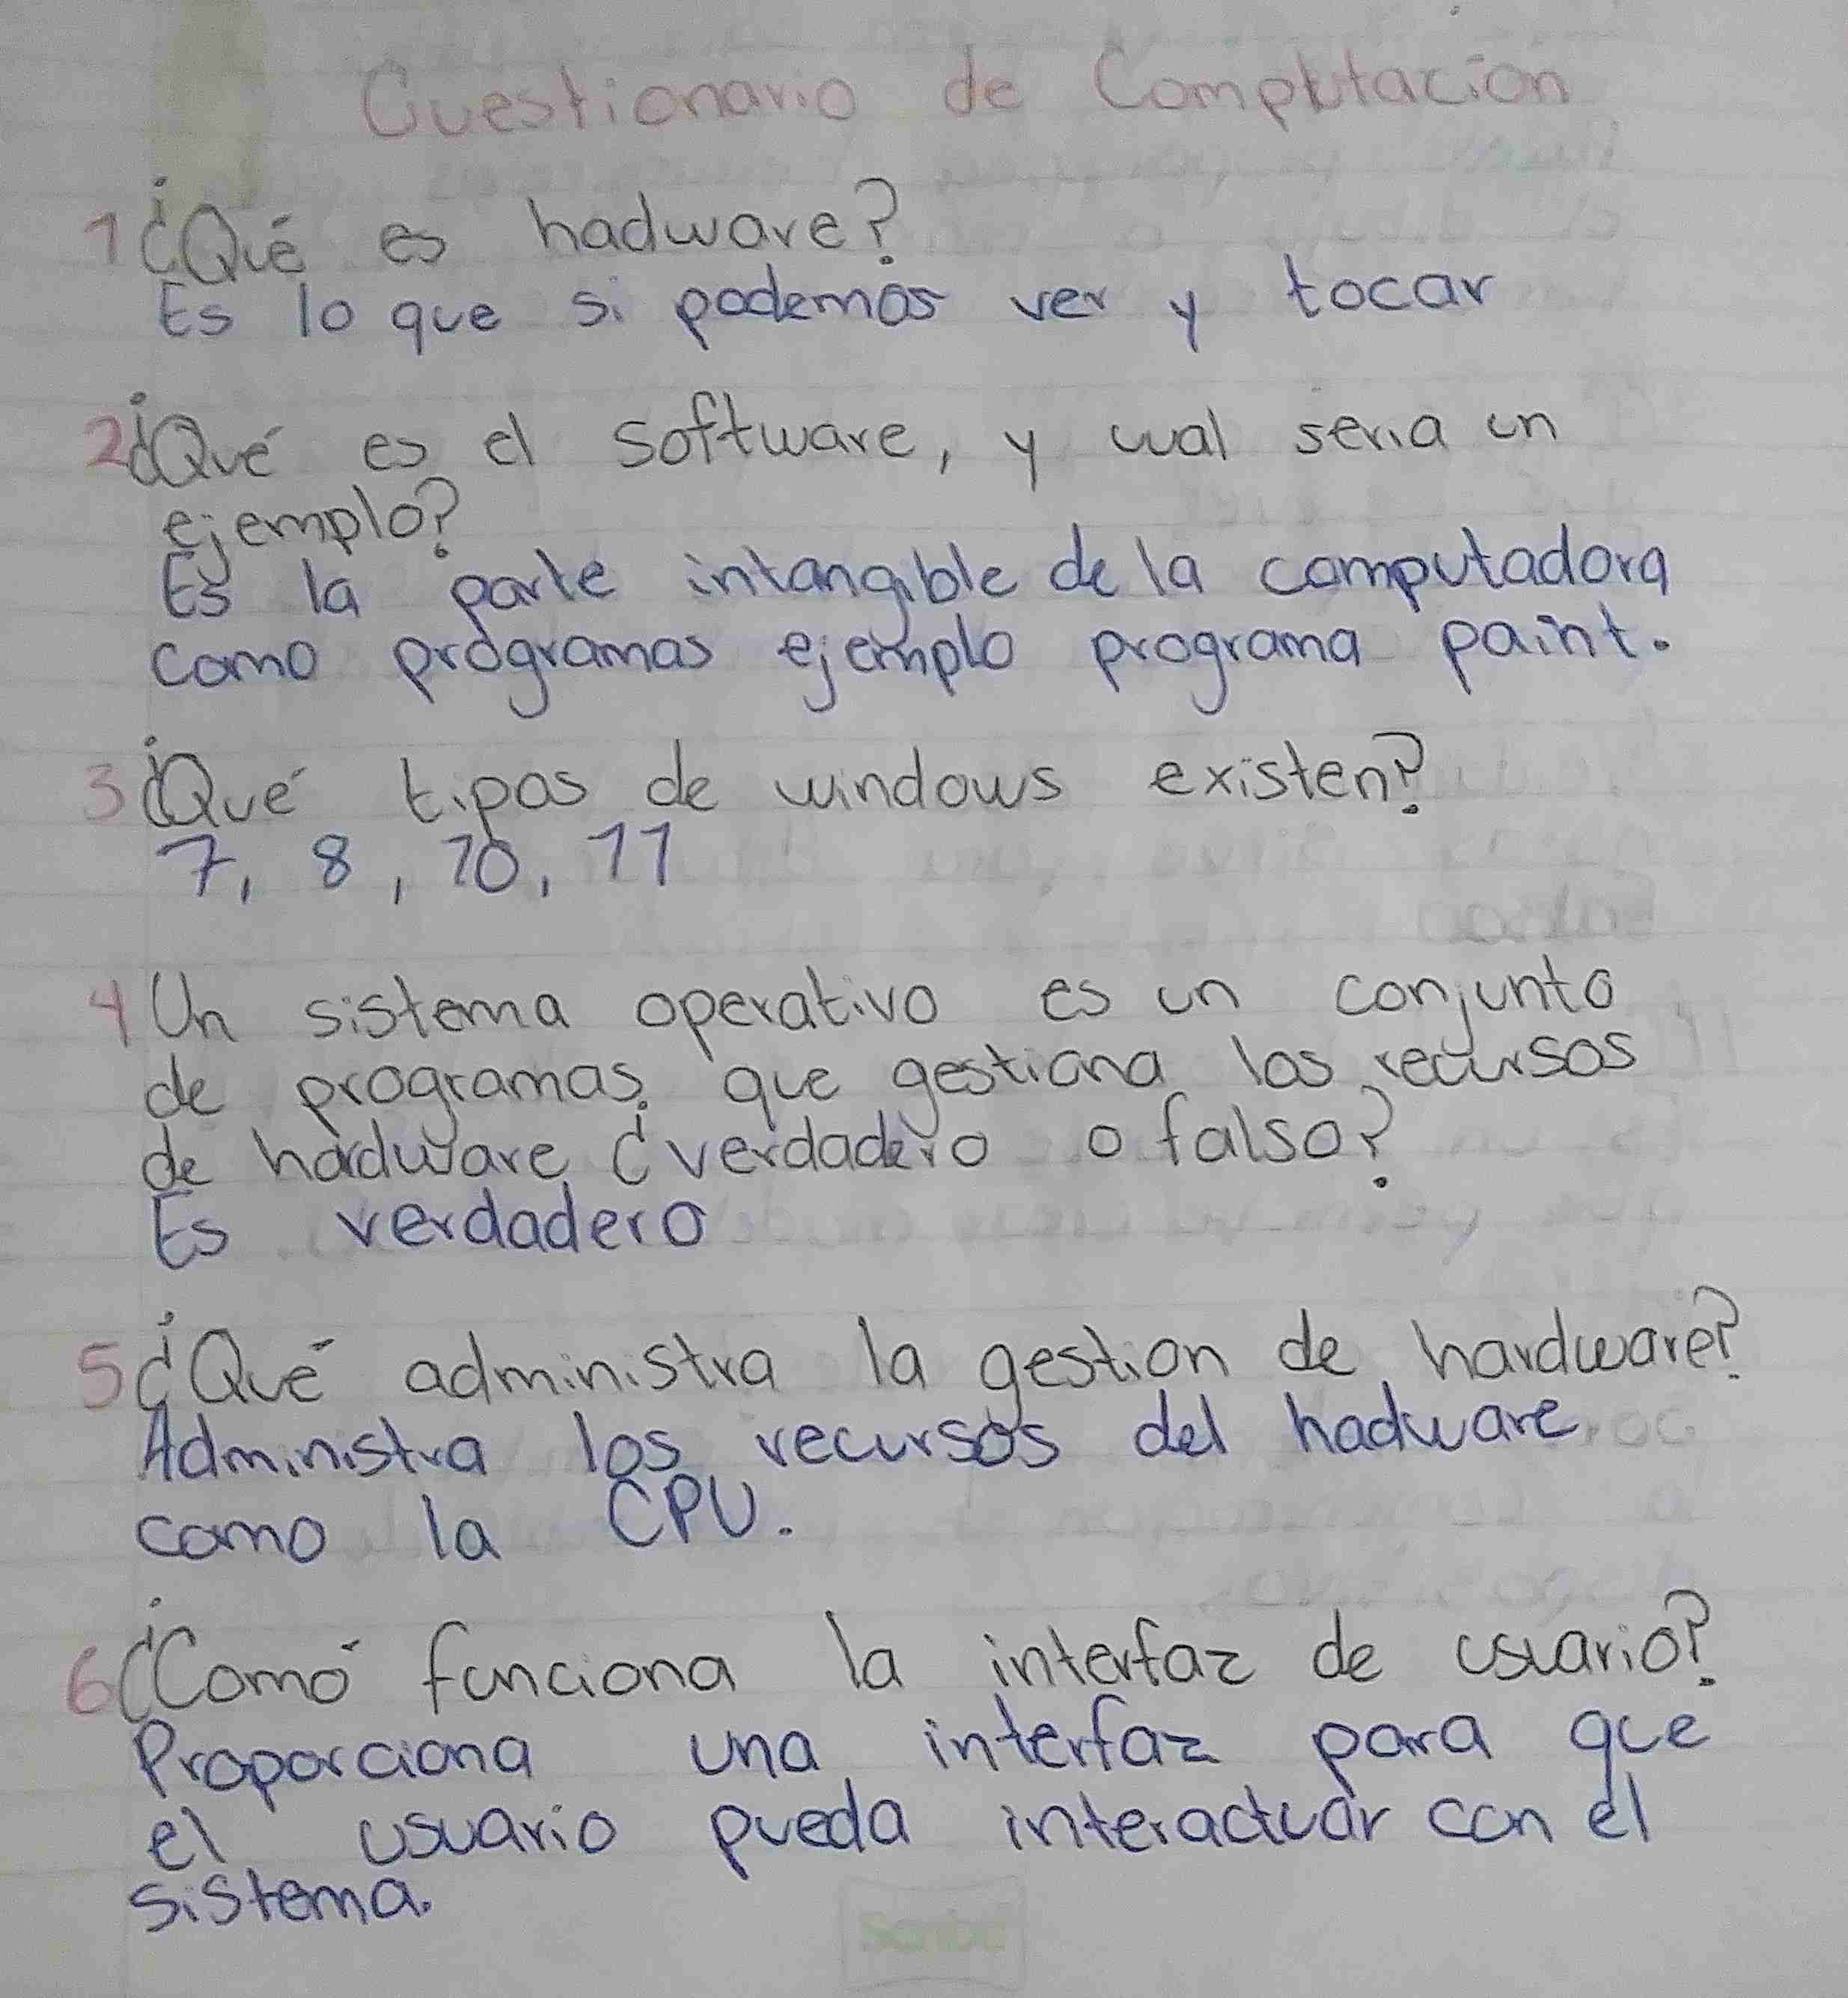 Cuestionario de Computación
1 ¿Qué es hadware?
Es lo que si podemos ver y tocar
2 ¿Qué es el software, y cual seria un
ejemplo?
Es la parte intangible de la computadora
como programas ejemplo programa paint.
3 ¿Qué tipos de windows existen?
7, 8, 10, 11
4 Un sistema operativo es un conjunto
de programas que gestiona los recursos
de hardware ¿verdadero o falso?
Es verdadero
5 ¿Qué administra la gestion de hardware?
Administra los recursos del hadware
como la CPU.
6 ¿Comó funciona la interfaz de usuario?
Proporciona una interfaz para que
el usuario pueda interactuar con el
sistema.
Scribe